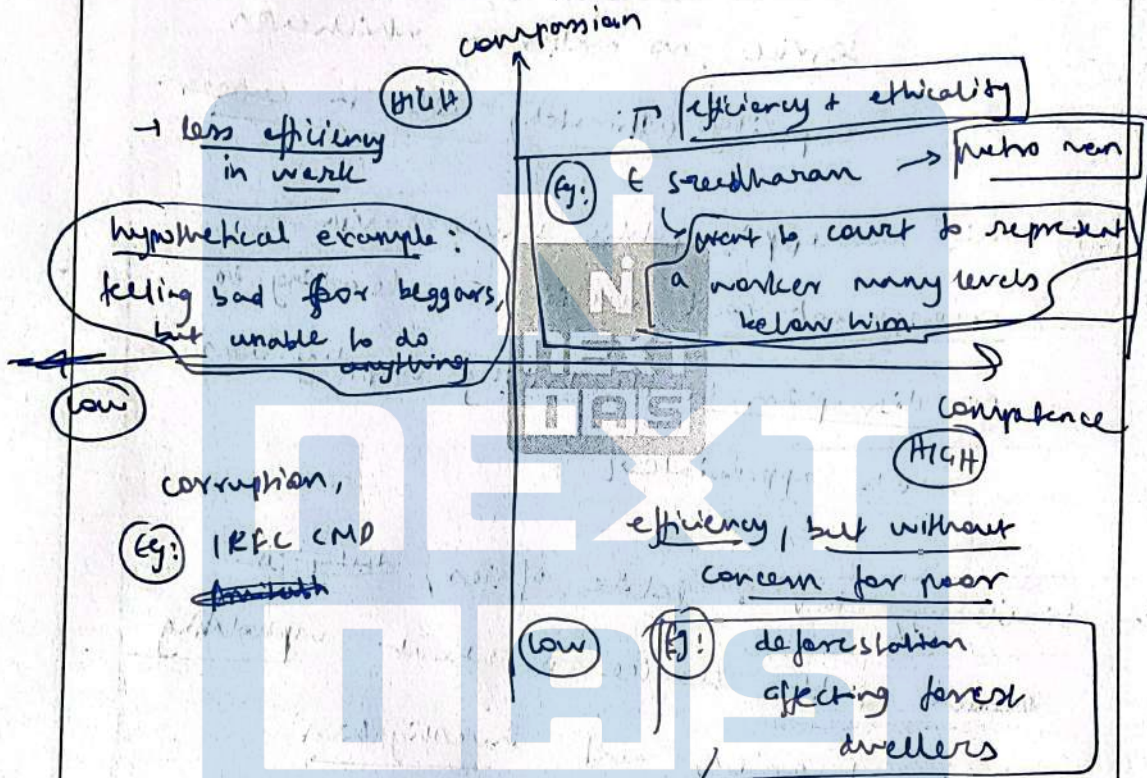 compassion
HIGH
→ less efficiency
in work
hypothetical example:
feeling bad for beggars,
but unable to do
anything
efficiency + ethicality
Eg: E Sreedharan → Metro man
went to court to represent
a worker many levels
below him
LOW
competence
HIGH
corruption,
Eg: IRFC CMD
efficiency, but without
concern for poor
LOW
Eg: deforestation
affecting forest
dwellers
N
NEXT
IAS
NEXT
IAS